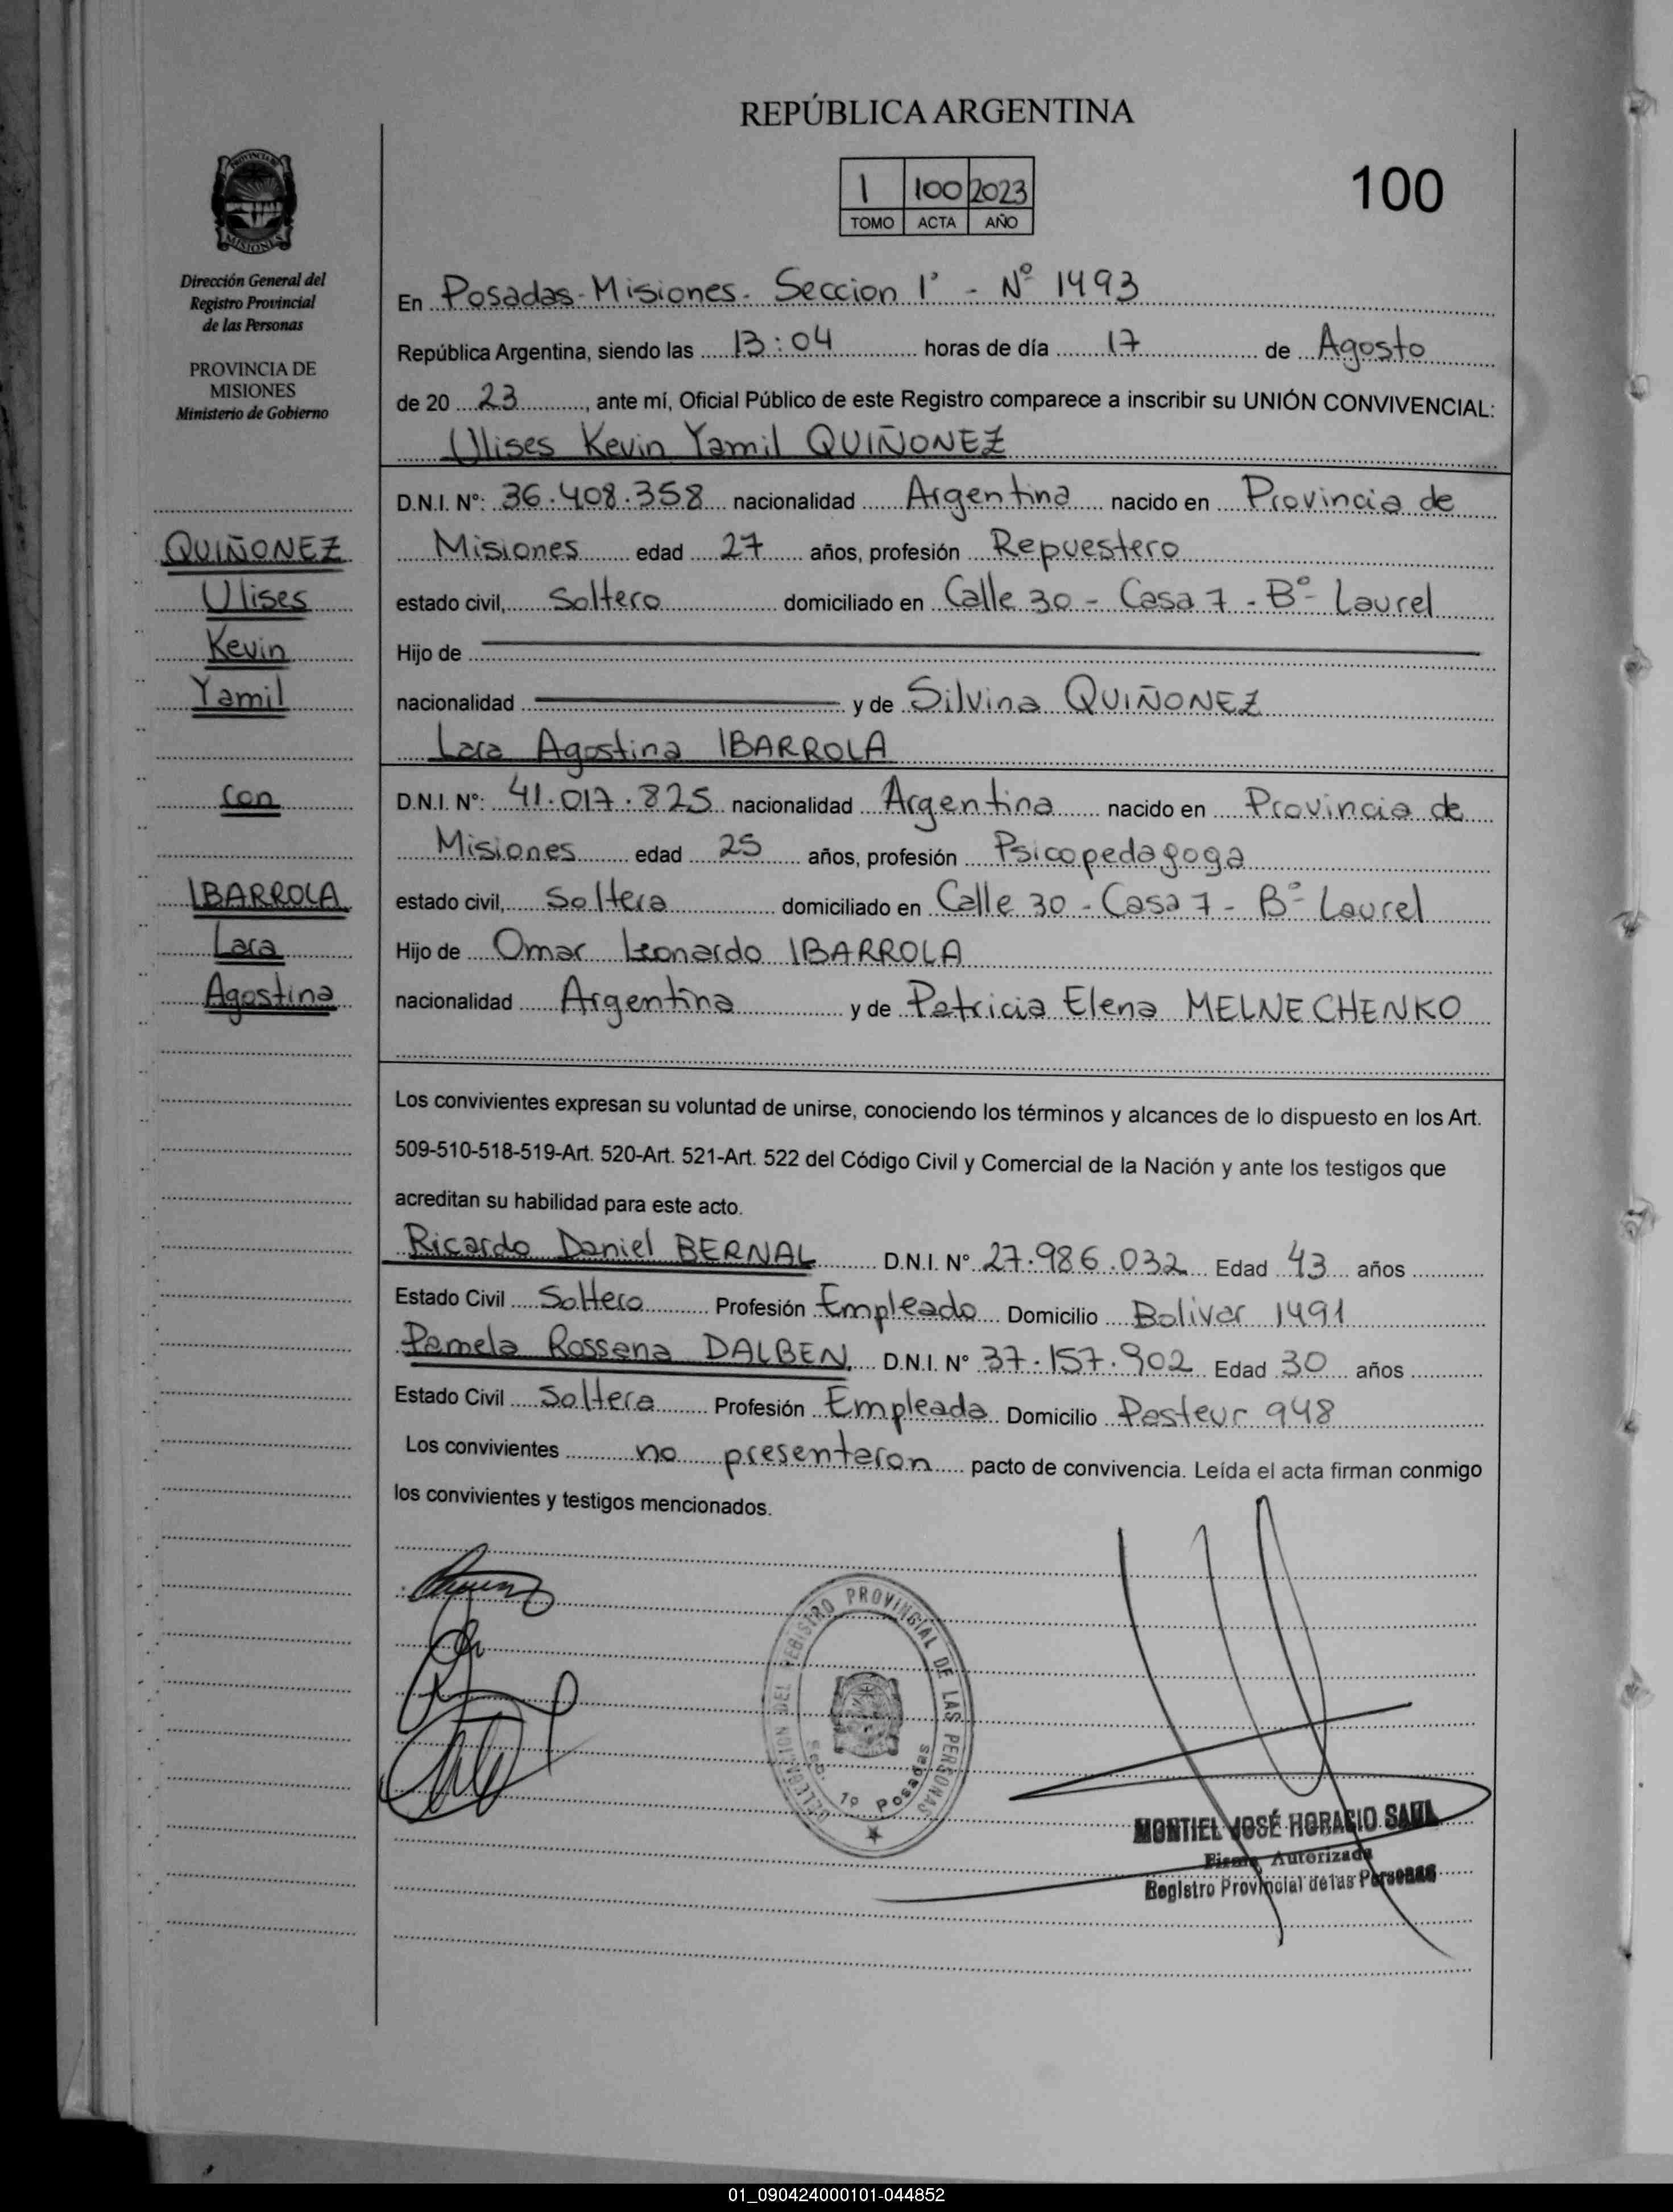 REPÚBLICA ARGENTINA
1 100 2023
TOMO ACTA AÑO
100
PROVINCIA DE
MISIONES
Dirección General del
Registro Provincial
de las Personas
PROVINCIA DE
MISIONES
Ministerio de Gobierno
QUIÑONEZ
Ulises
Kevin
Yamil
con
IBARROLA
Lara
Agostina
En Posadas-Misiones. Seccion 1° - N° 1493
República Argentina, siendo las 13:04 horas de día 17 de Agosto
de 20 23, ante mí, Oficial Público de este Registro comparece a inscribir su UNIÓN CONVIVENCIAL:
Ulises Kevin Yamil QUIÑONEZ
D.N.I. Nº: 36.408.358 nacionalidad Argentina nacido en Provincia de
Misiones edad 27 años, profesión Repuestero
estado civil, Soltero domiciliado en Calle 30 - Casa 7 - B° Laurel
Hijo de
nacionalidad y de Silvina QUIÑONEZ
Lara Agostina IBARROLA
D.N.I. Nº: 41.017.825 nacionalidad Argentina nacido en Provincia de
Misiones edad 25 años, profesión Psicopedagoga
estado civil, Soltera domiciliado en Calle 30 - Casa 7 - B° Laurel
Hijo de Omar Leonardo IBARROLA
nacionalidad Argentina y de Patricia Elena MELNECHENKO
Los convivientes expresan su voluntad de unirse, conociendo los términos y alcances de lo dispuesto en los Art.
509-510-518-519-Art. 520-Art. 521-Art. 522 del Código Civil y Comercial de la Nación y ante los testigos que
acreditan su habilidad para este acto.
Ricardo Daniel BERNAL D.N.I. Nº 27.986.032 Edad 43 años
Estado Civil Soltero Profesión Empleado Domicilio Bolivar 1491
Pamela Rossana DALBEN D.N.I. Nº 37.157.902 Edad 30 años
Estado Civil Soltera Profesión Empleada Domicilio Pasteur 948
Los convivientes no presentaron pacto de convivencia. Leída el acta firman conmigo
los convivientes y testigos mencionados.
DELEGACION DEL REGISTRO PROVINCIAL DE LAS PERSONAS
Sec. 1º Posadas
MONTIEL JOSÉ HORACIO SAUL
Firma Autorizada
Registro Provincial de las Personas
01_090424000101-044852